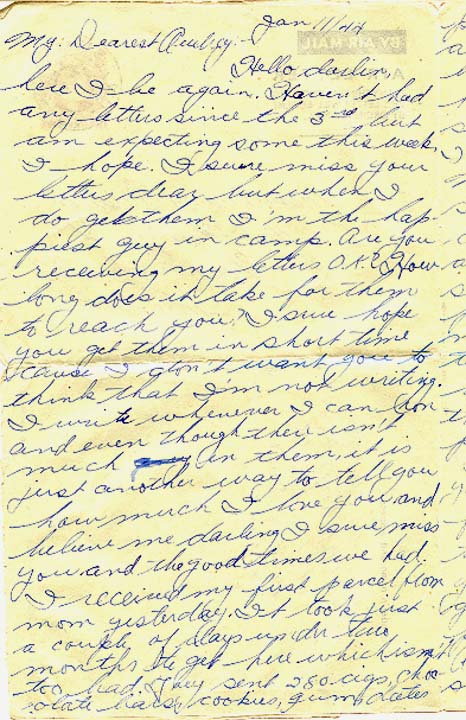 Jan 11/44
BY AIR MAIL
My: Dearest
Hello darlin,
here I be again. Haven't had
any letters since the 3rd but
am expecting some this week,
I hope. I sure miss your
letters dear but when I
do get them I'm the hap-
piest guy in camp. Are you
receiving my letters O.K.? How
long does it take for them
to reach you? I sure hope
you get them in short time
'cause I don't want you to
think that I'm not writing.
I write whenever I can hon
and even though there isn't
much in them, it is
just another way to tell you
how much I love you and
believe me darling I sure miss
you and the good times we had.
I received my first parcel from
mom yesterday. It took just
a couple of days under two
months to get here which isn't
too bad. They sent 280 cigs, choc
olate bars, cookies, gum, dates